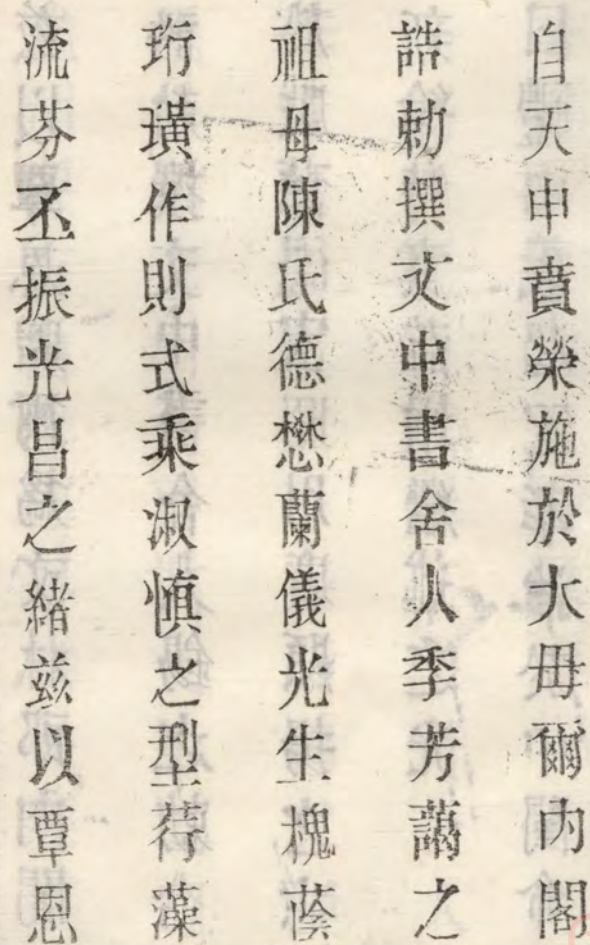 自天申賁榮施於大毋爾內閣
誥勅撰文中書舍人季芳藹之
祖母陳氏德懋蘭儀光生槐蔭
珩璜作則式乘淑愼之型荇藻
流芬丕振光昌之緒兹以覃恩